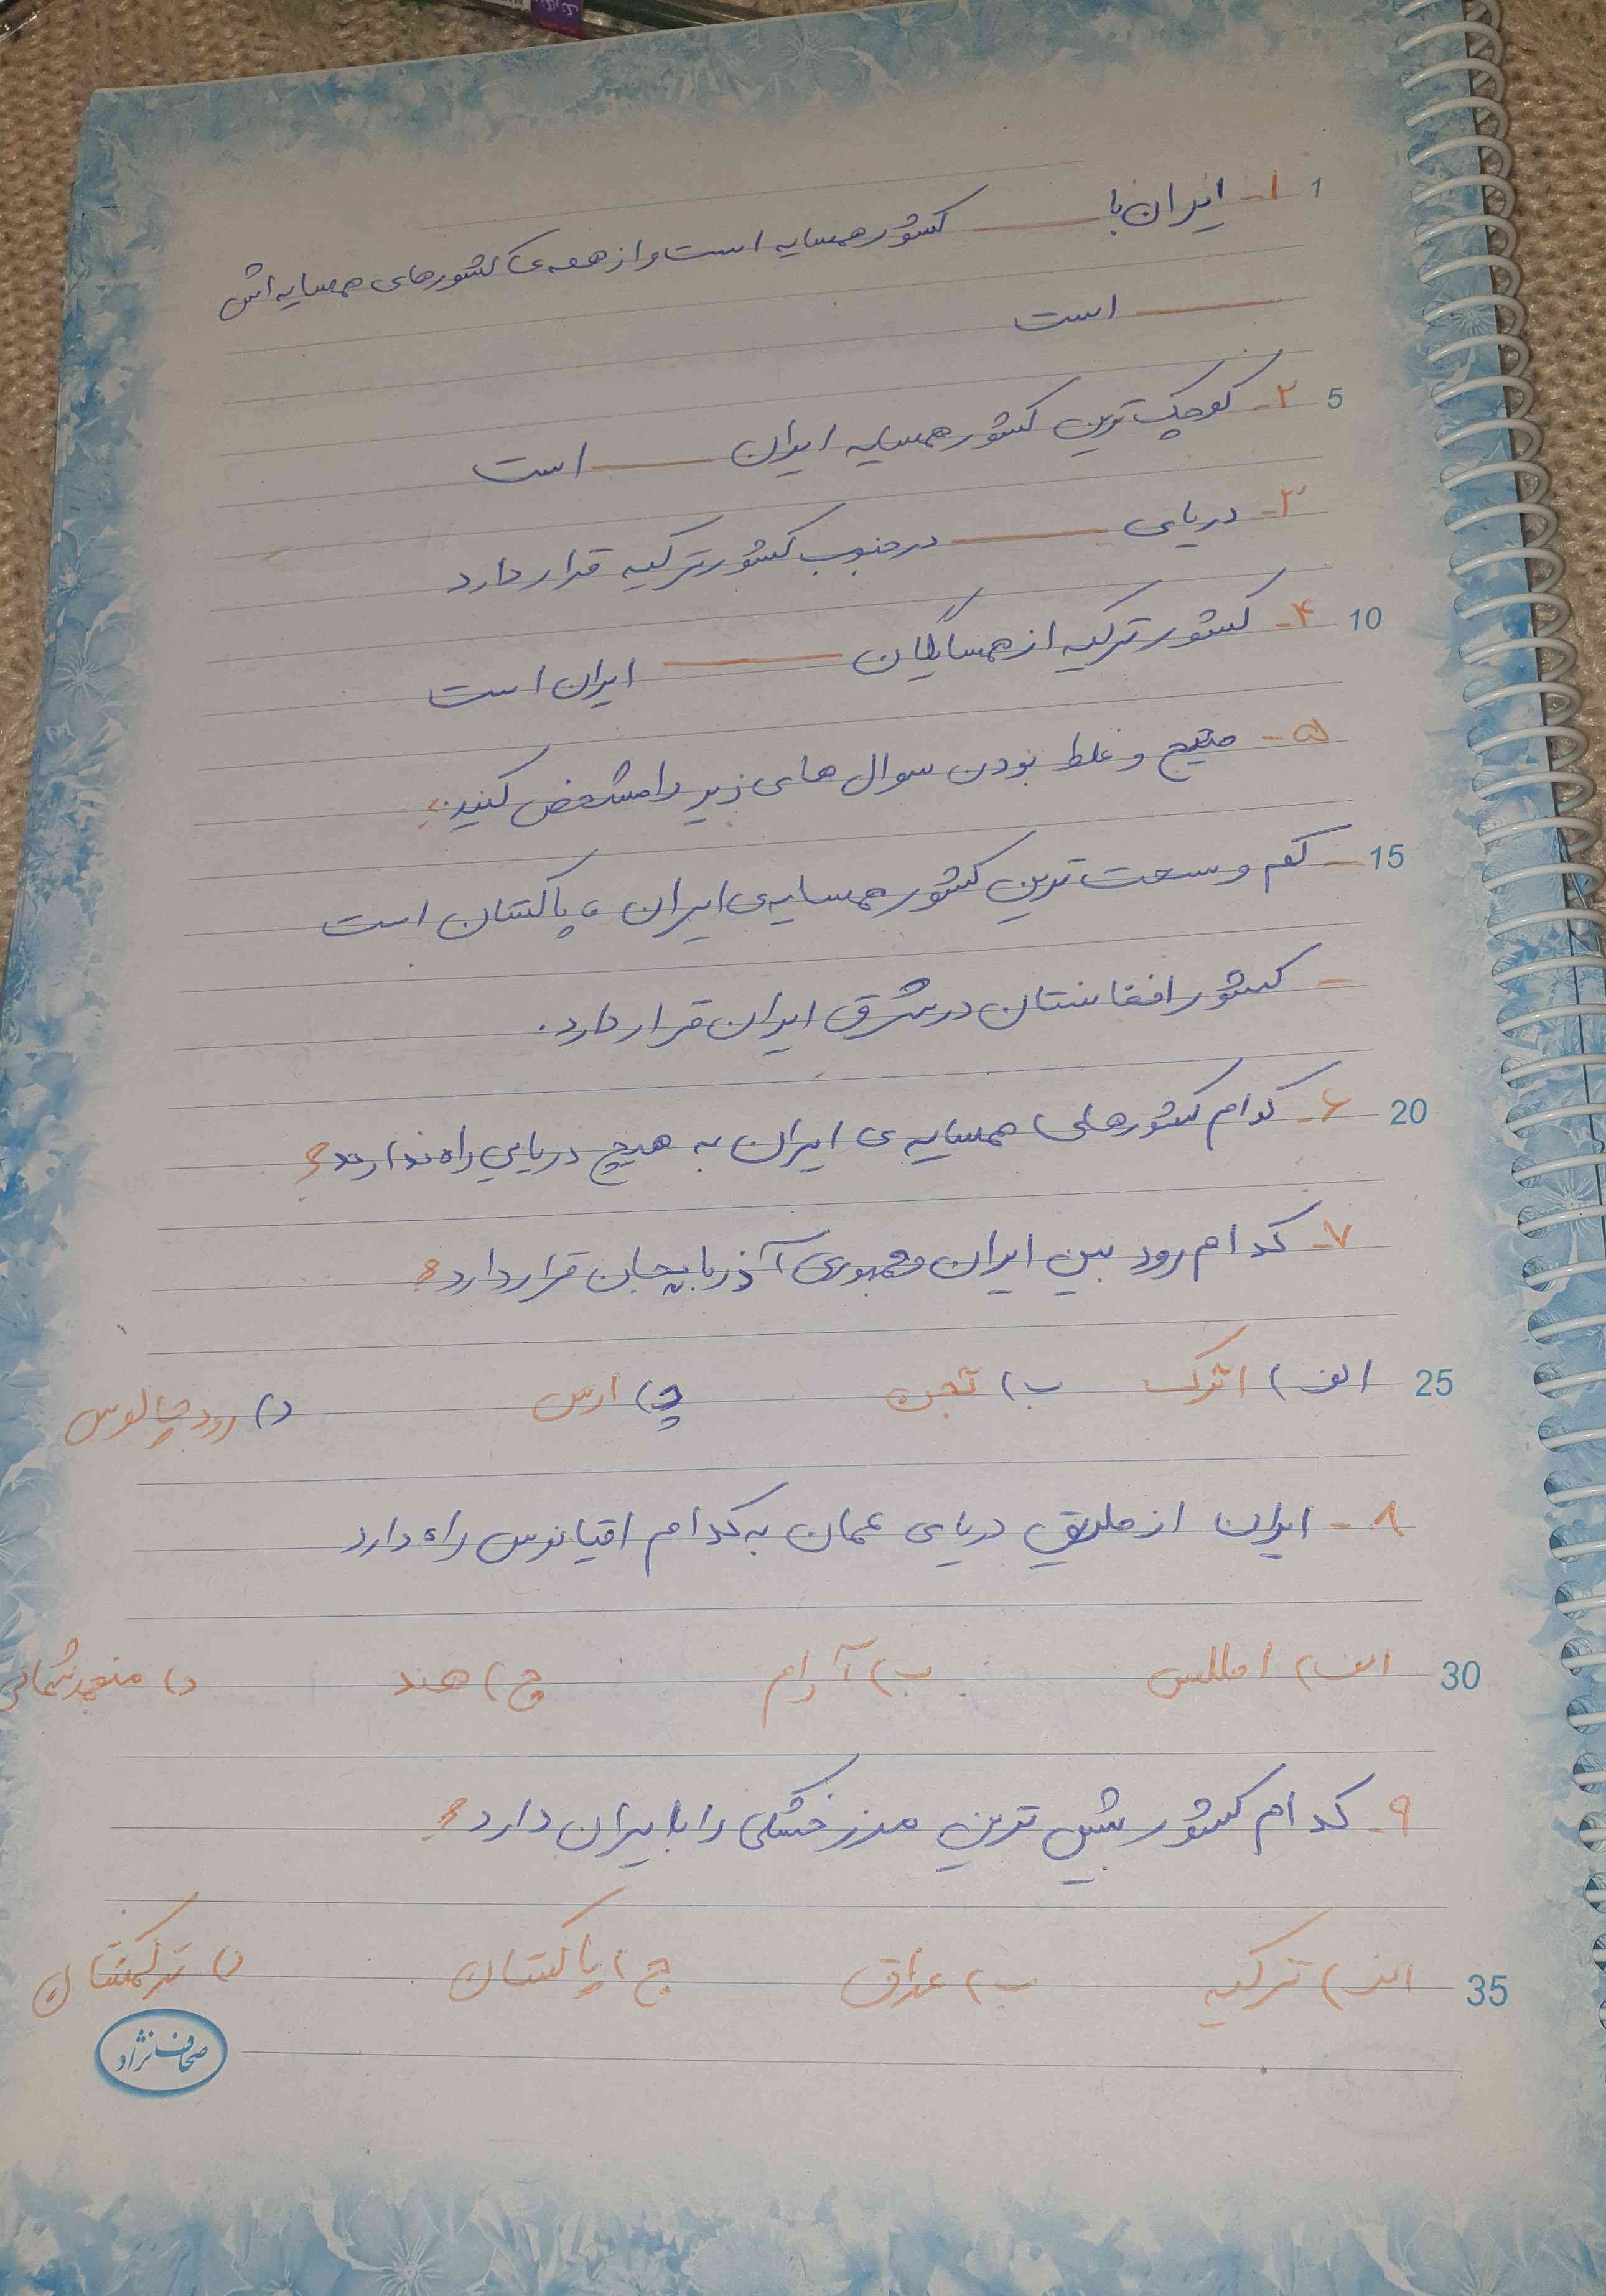 1 ۱- ایران با ــــــ کشور همسایه است و از همه ی کشورهای همسایه اش
ــــــ است
5 ۲- کوچک ترین کشور همسایه ایران ــــــ است
۳- دریای ــــــ در جنوب کشور ترکیه قرار دارد
10 ۴- کشور ترکیه از همسایگان ــــــ ایران است
۵- صحیح و غلط بودن سوال های زیر را مشخص کنید:
15 - کم وسعت ترین کشور همسایه ی ایران ، پاکستان است
- کشور افغانستان در شرق ایران قرار دارد.
20 ۶- کدام کشورهای همسایه ی ایران به هیچ دریایی راه ندارند؟
۷- کدام رود بین ایران و جمهوری آذربایجان قرار دارد؟
25 الف) اترک ب) تجن ج) ارس د) رود چالوس
۸- ایران از طریق دریای عمان به کدام اقیانوس راه دارد
30 الف) اطلس ب) آرام ج) هند د) منجمد شمالی
۹- کدام کشور بیش ترین مرز خشکی را با ایران دارد؟
35 الف) ترکیه ب) عراق ج) پاکستان د) ترکمنستان
صحاف نژاد